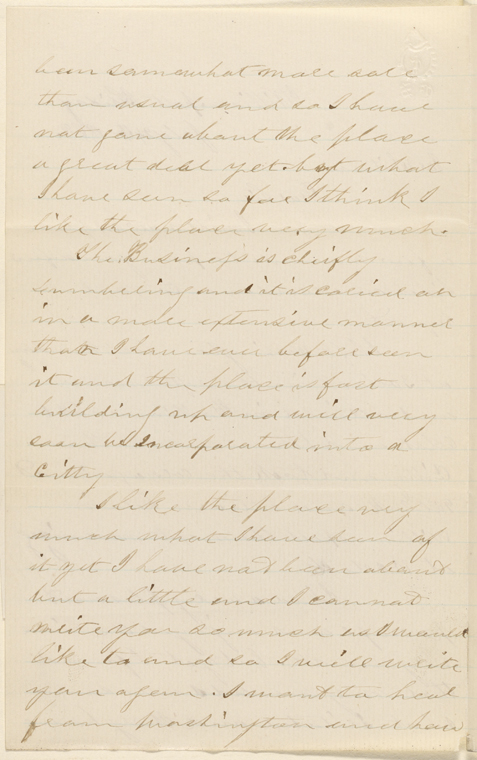 been somewhat more sore
than usual and so I have
not gone about the place
a great deal yet but what
I have seen so far I think I
like the place very much.
The Business is chiefly
lumbering and it is caried on
in a more extensive manner
than I have ever before seen
it and the place is fast
building up and will very
soon be Incorporated into a
Citty
I like the place very
much what I have seen of
it yet I have not been about
but a little and I cannot
write you so much as I would
like to and so I will write
you again. I want to hear
from Washington and how